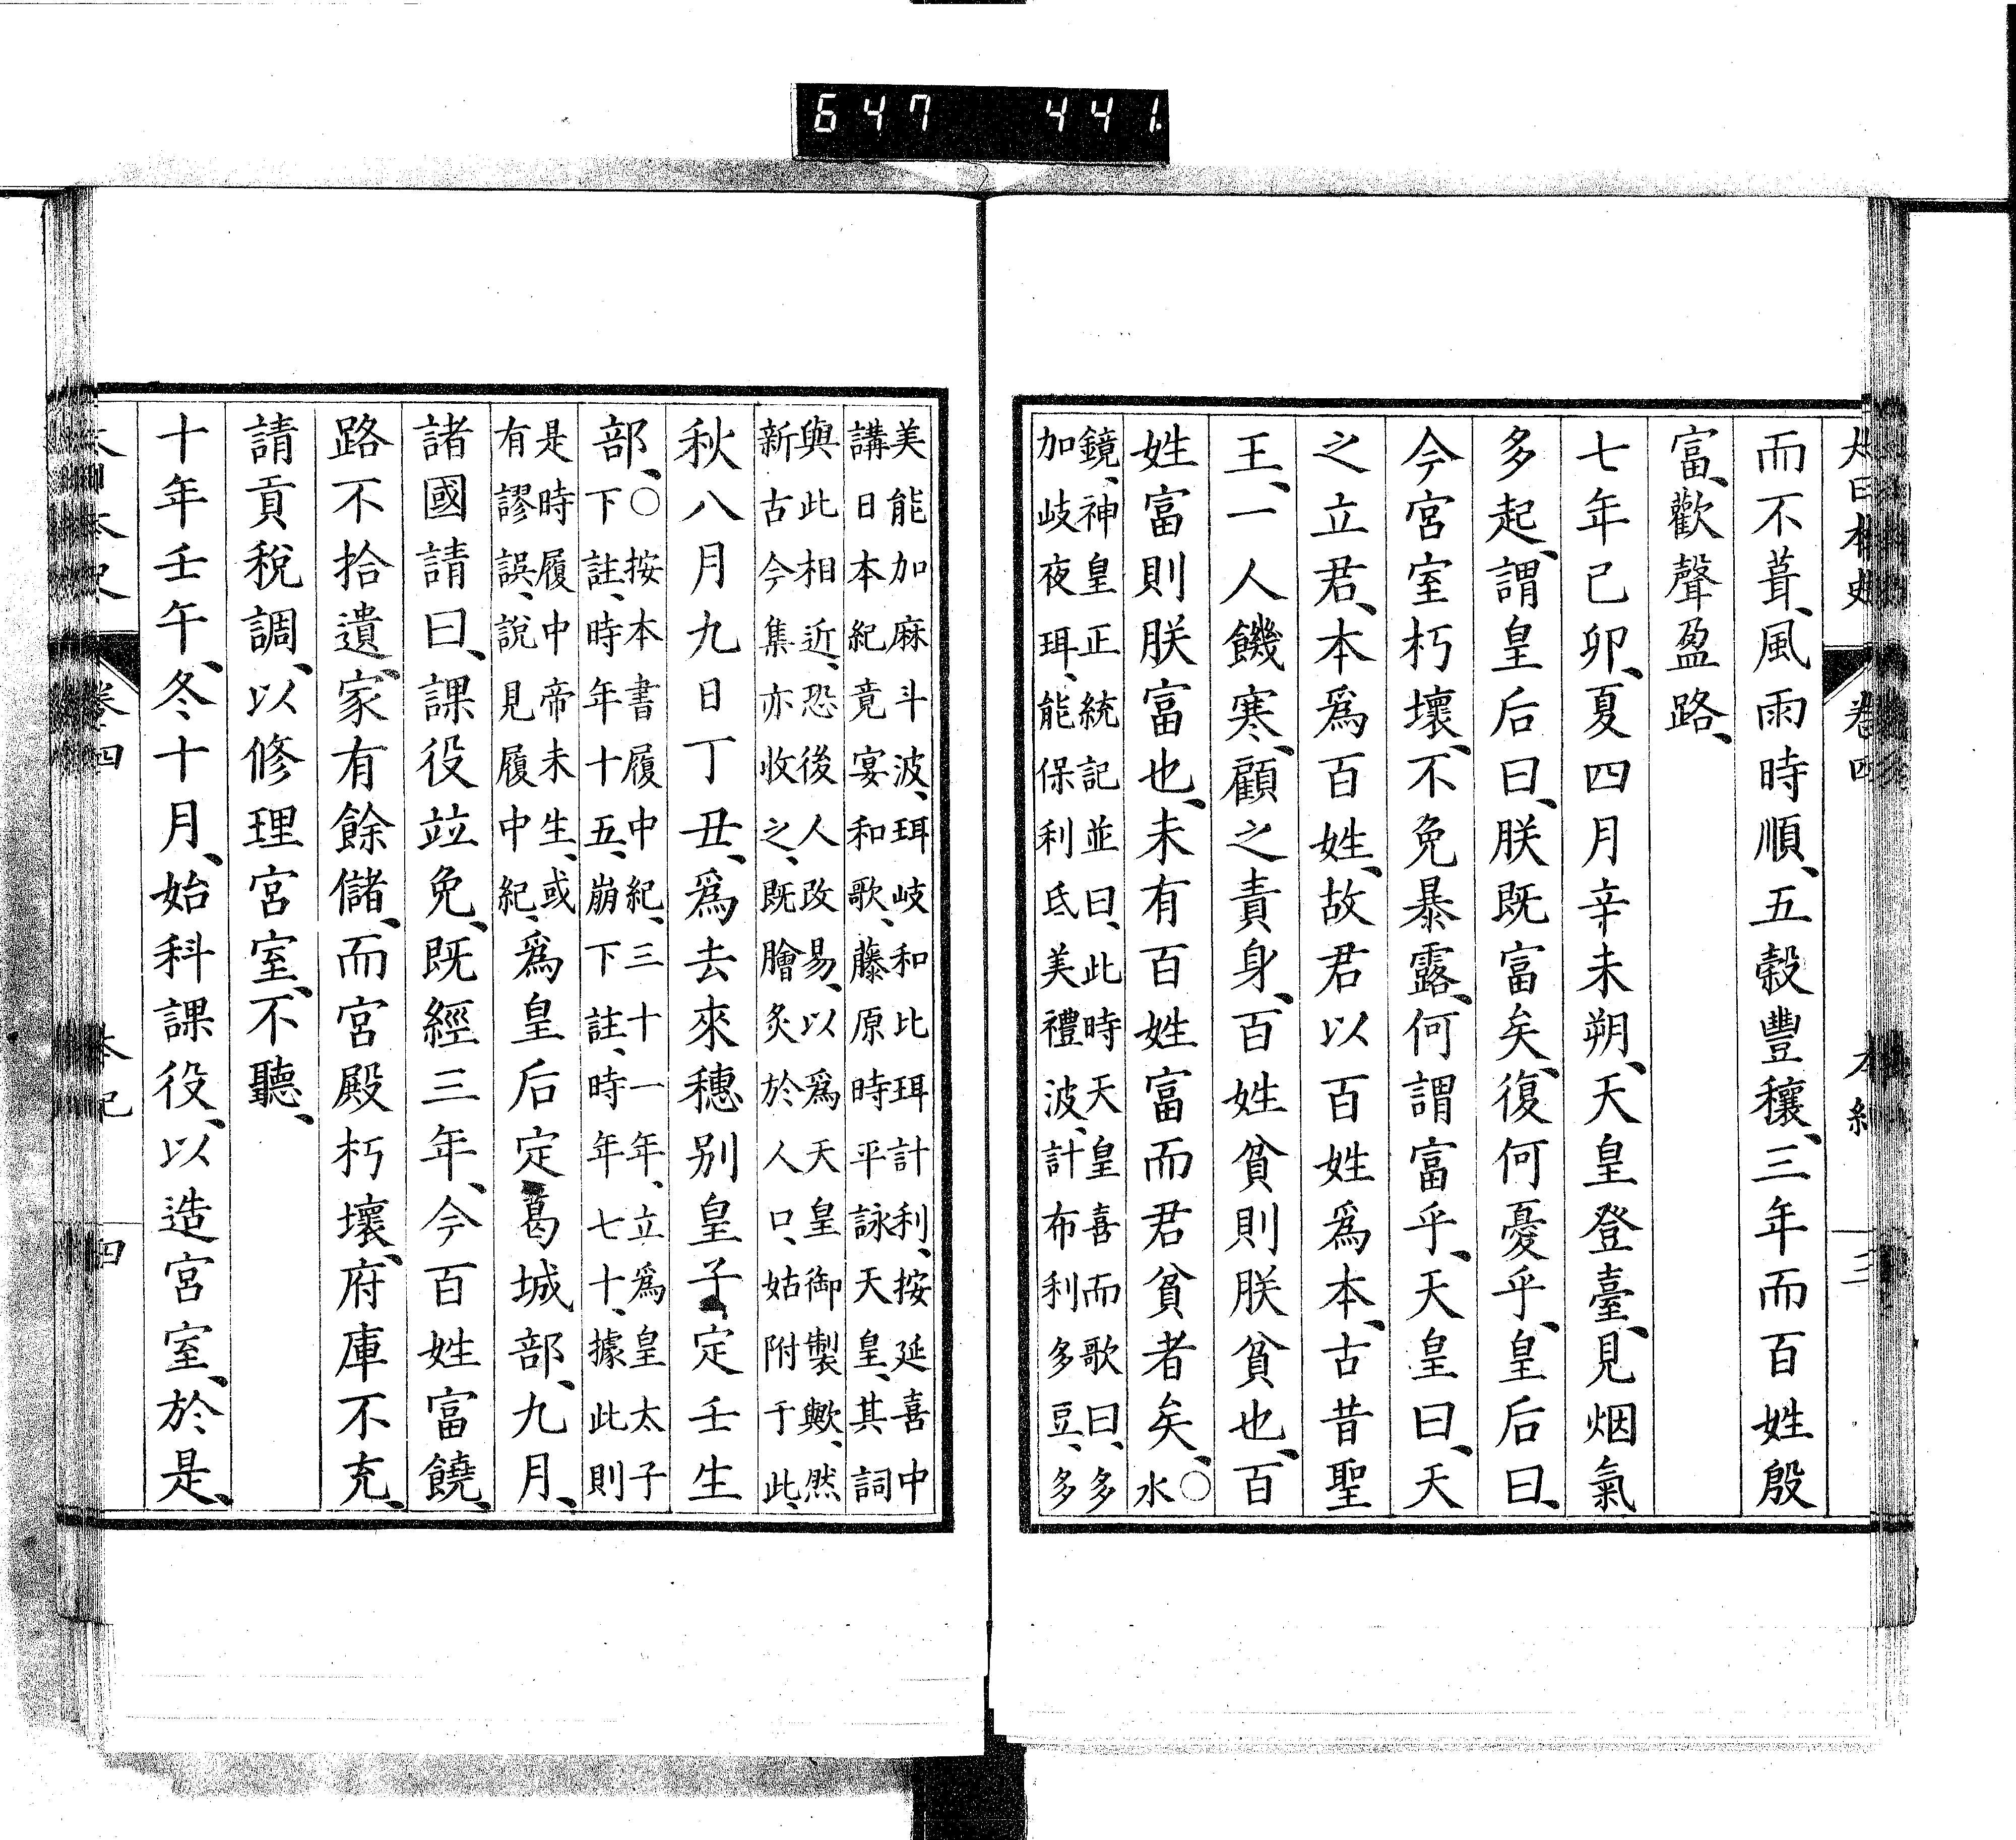 647 441
大日本史 卷四 本紀 三
而不葺、風雨時順、五穀豐穰、三年而百姓殷
富、歡聲盈路、
七年己卯、夏四月辛未朔、天皇登臺、見烟氣
多起、謂皇后曰、朕既富矣、復何憂乎、皇后曰、
今宮室朽壞、不免暴露、何謂富乎、天皇曰、天
之立君、本爲百姓、故君以百姓爲本、古昔聖
王、一人饑寒、顧之責身、百姓貧則朕貧也、百
姓富則朕富也、未有百姓富而君貧者矣、○水
鏡、神皇正統記並曰、此時天皇喜而歌曰、多
加岐夜珥、能保利氐美禮波、計布利多豆、多
美能加麻斗波、珥岐和比珥計利、按延喜中
講日本紀竟宴和歌、藤原時平詠天皇、其詞
與此相近、恐後人改易、以爲天皇御製歟、然
新古今集亦收之、既膾炙於人口、姑附于此、
秋八月九日丁丑、爲去來穗別皇子、定壬生
部、○按本書履中紀、三十一年、立爲皇太子
下註、時年十五、崩下註、時年七十、據此則
是時履中帝未生、或
有謬誤、說見履中紀、爲皇后定葛城部、九月、
諸國請曰、課役竝免、既經三年、今百姓富饒、
路不拾遺、家有餘儲、而宮殿朽壞、府庫不充、
請貢稅調、以修理宮室、不聽、
十年壬午、冬十月、始科課役、以造宮室、於是、
大日本史 卷四 本紀 四